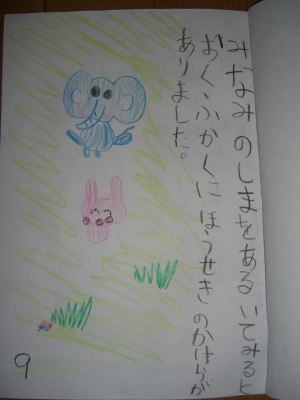 みなみのしまをあるいてみると
おくふかくにほうせきのかけらが
ありました。
9